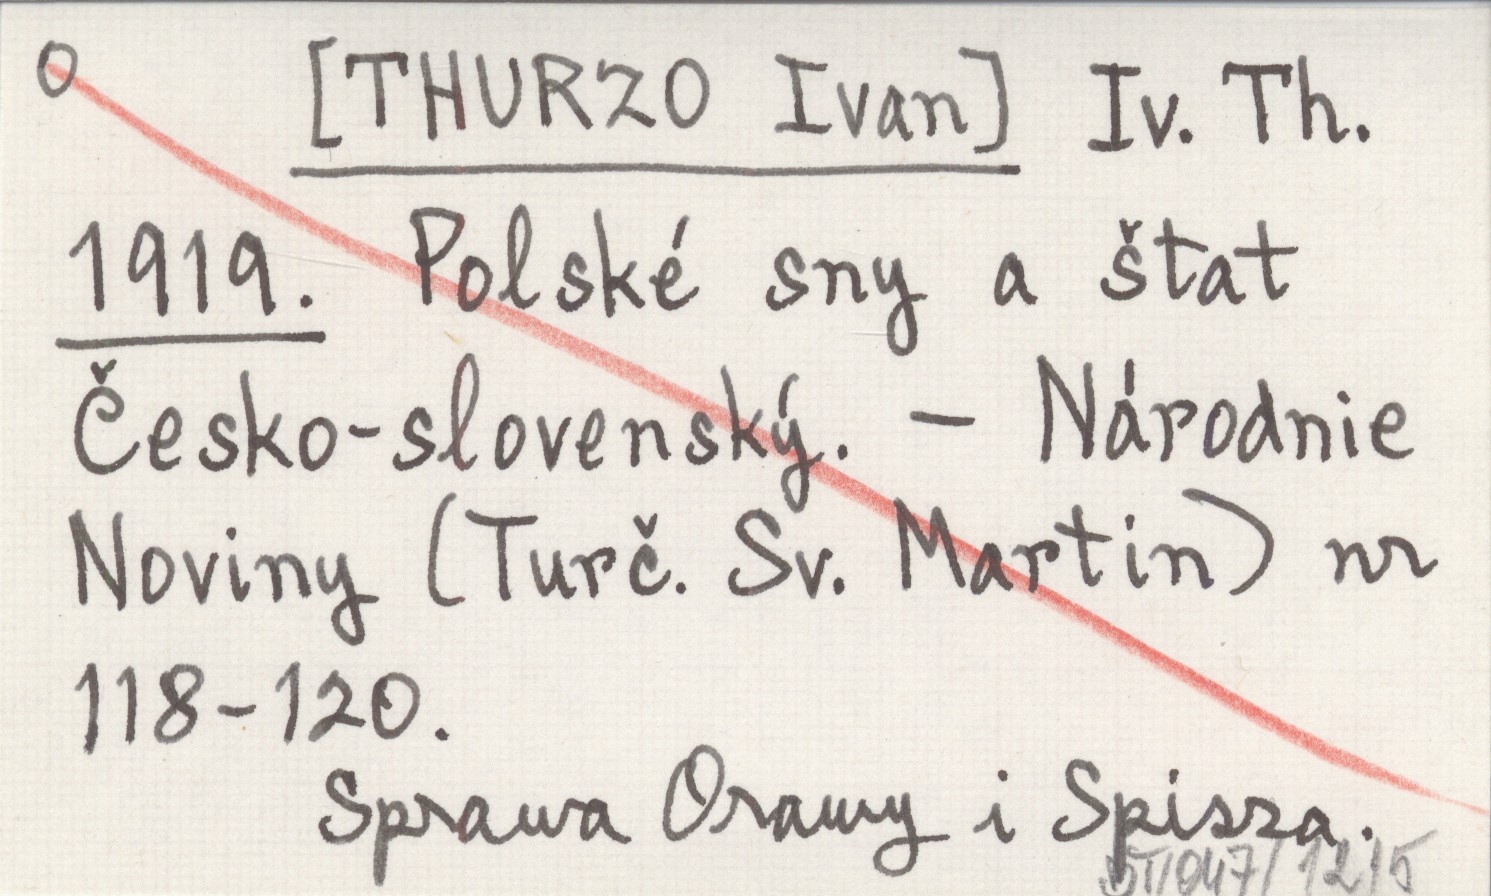 O [THURZO Ivan] Iv. Th.
1919. Polské sny a štat
Česko-slovenský. – Národnie
Noviny (Turč. Sv. Martin) nr
118-120.
Sprawa Orawy i Spisza.